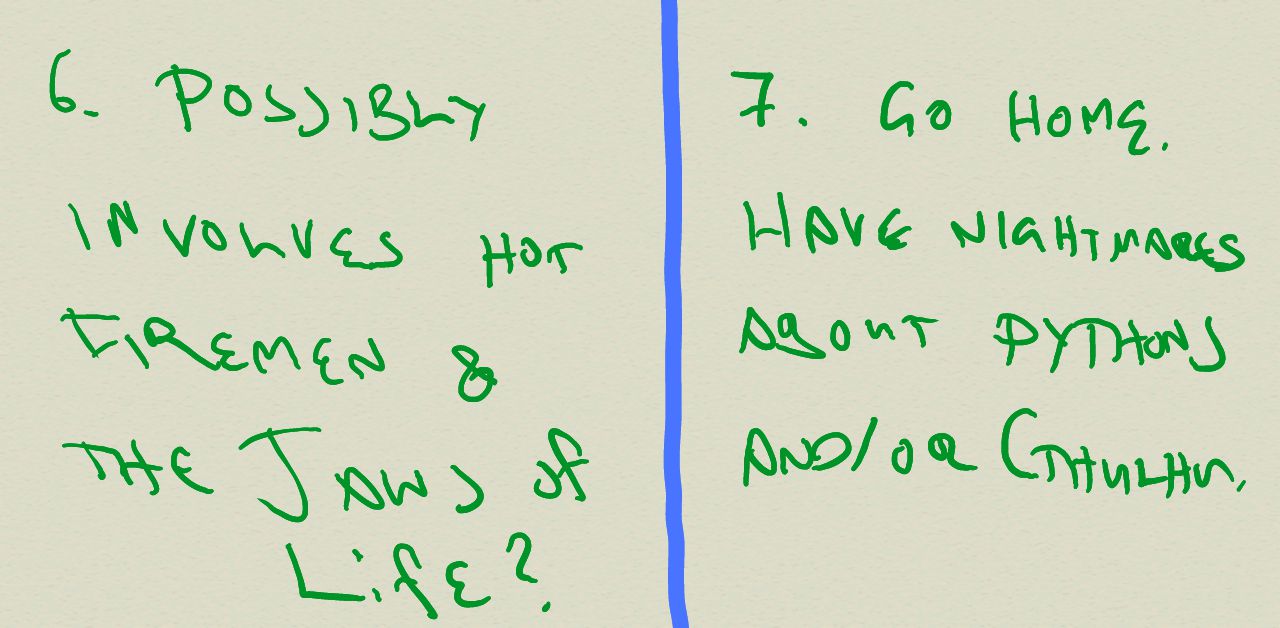 6. POSSIBLY
INVOLVES HOT
FIREMEN &
THE JAWS OF
LIFE?
7. GO HOME.
HAVE NIGHTMARES
ABOUT PYTHONS
AND/OR CTHULHU.